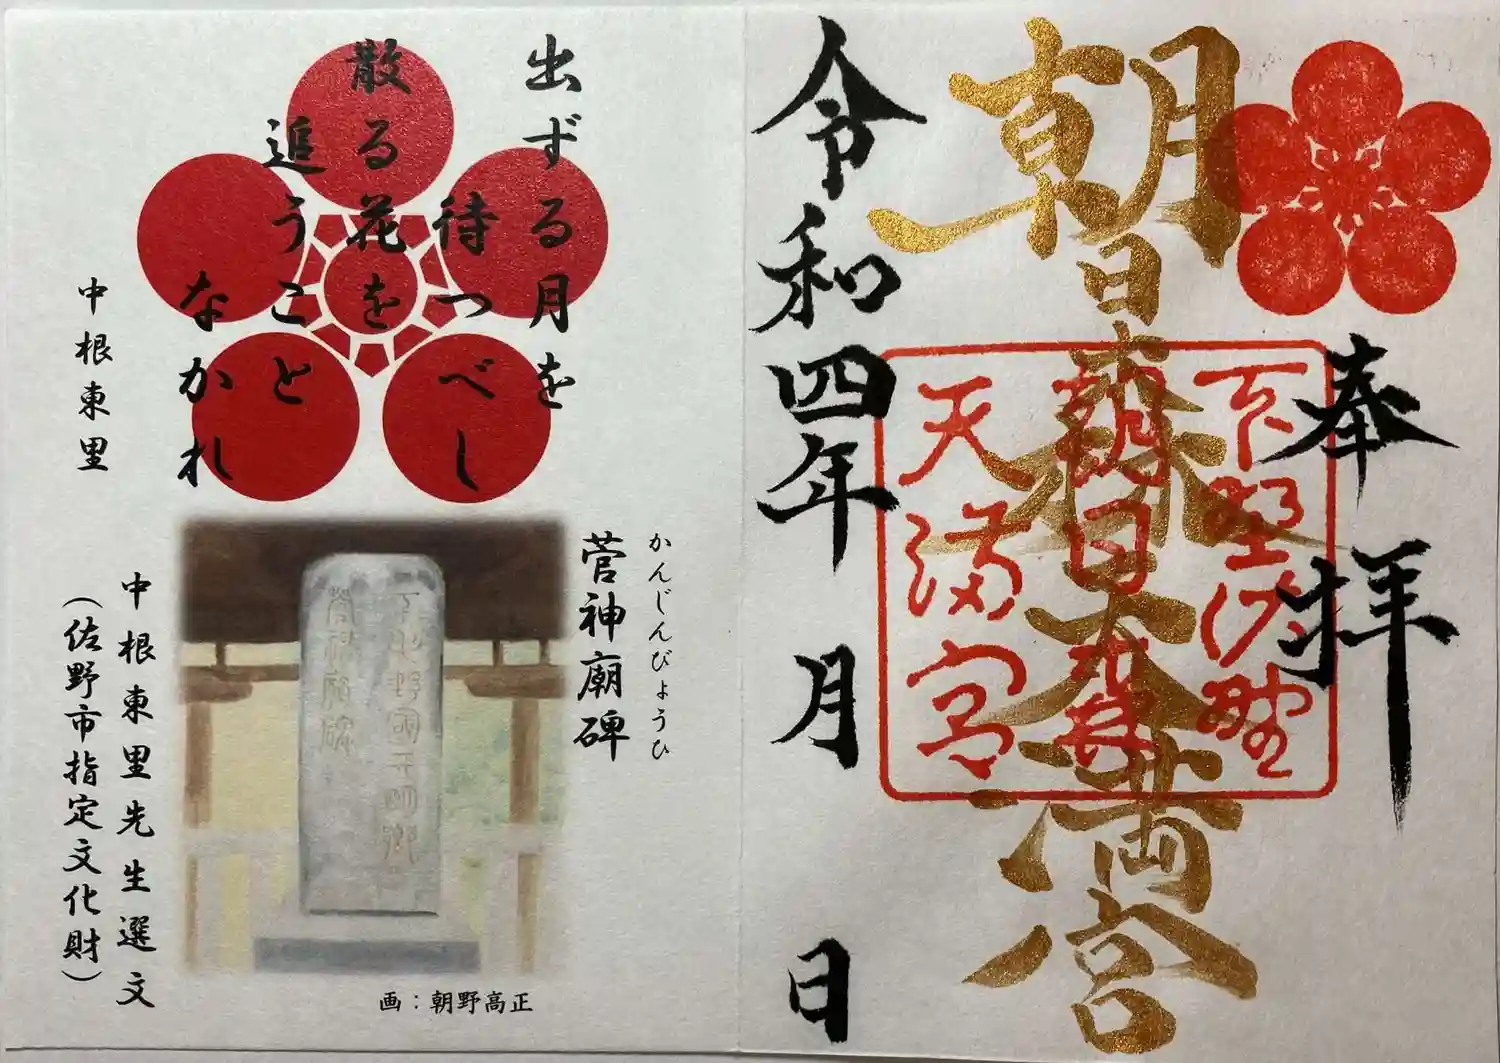 奉拝
朝日森天満宮
下野佐野
朝日森
天満宮
令和四年 月 日
出ずる月を
待つべし
散る花を
追うこと
なかれ
中根東里
かんじんびょうひ
菅神廟碑
下野國天明郷
菅神廟碑
中根東里先生選文
（佐野市指定文化財）
画：朝野高正